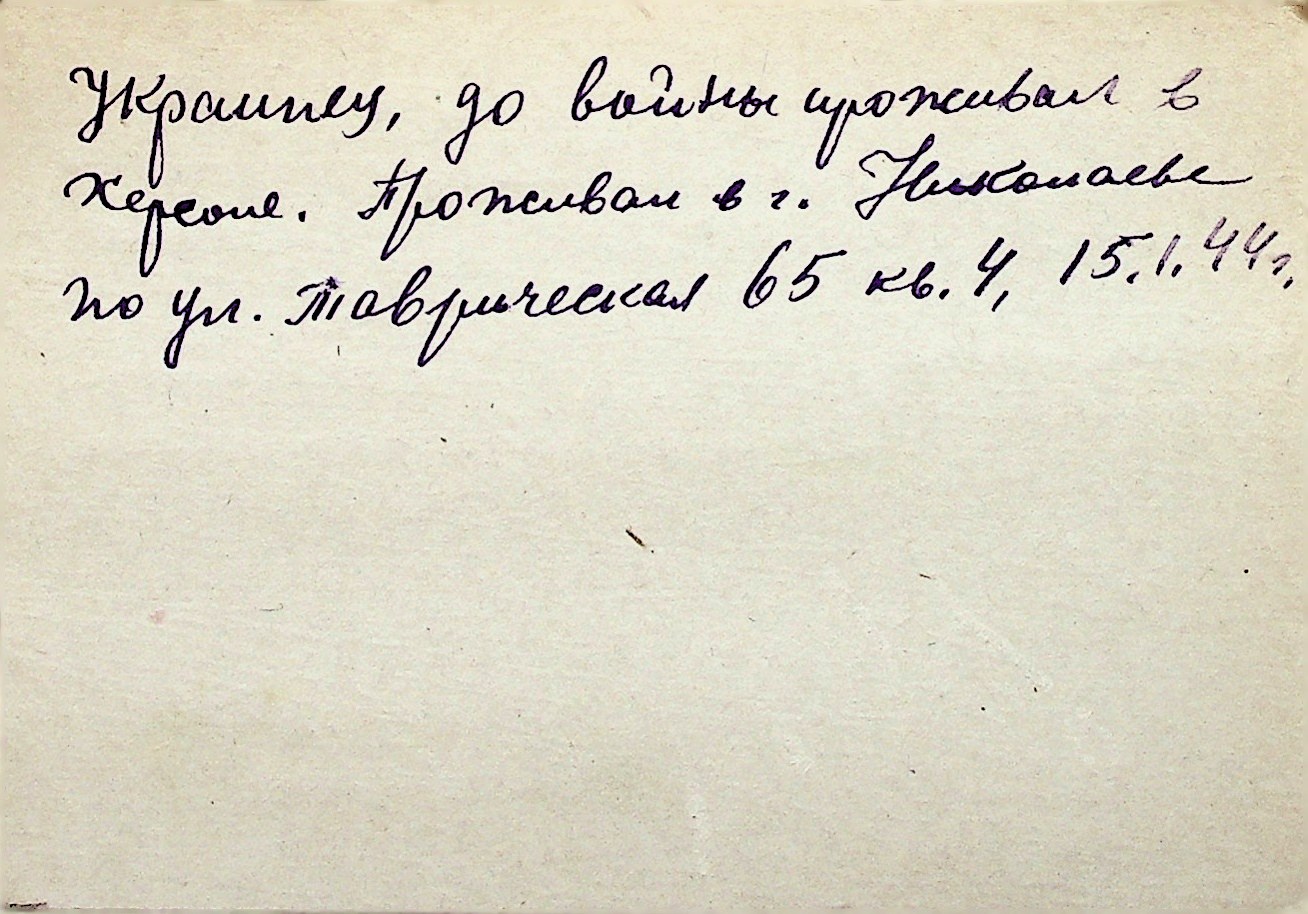 Украинец, до войны проживал в
Херсоне. Проживал в г. Николаеве
по ул. Таврическая 65 кв. 4, 15.1.44г.